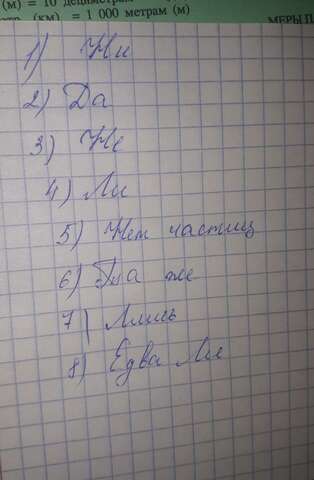 (м) = 10 дециметрам
(км) = 1 000 метрам (м)
МЕРЫ П
1) Ни
2) Да
3) Не
4) Ли
5) Нет частиц
6) же
7) Лишь
8) Едва Ли